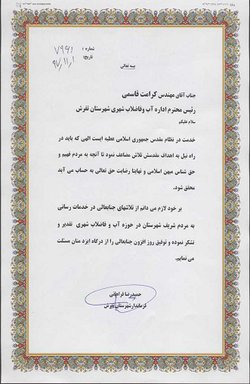 بسمه تعالی
شماره :
تاریخ
جناب آقای مهندس کرامت قاسمی
رئیس محترم اداره آب وفاضلاب شهری شهرستان تفرش
سلام علیکم
خدمت در نظام مقدس جمهوری اسلامی عطیه ایست الهی که باید در
راه نیل به اهداف مقدسش تلاش مضاعف نمود تا آنچه به مردم فهیم و
حق شناس میهن اسلامی و نهایتا رضایت حق تعالی به حساب می آید
محقق شود.
بر خود لازم می دانم از تلاشهای جنابعالی در خدمات رسانی
به مردم شریف شهرستان در حوزه آب و فاضلاب شهری تقدیر و
تشکر نموده و توفیق روز افزون جنابعالی را از درگاه ایزد منان مسئلت
می نمایم.
حمیدرضا فراهانی
فرماندار شهرستان تفرش